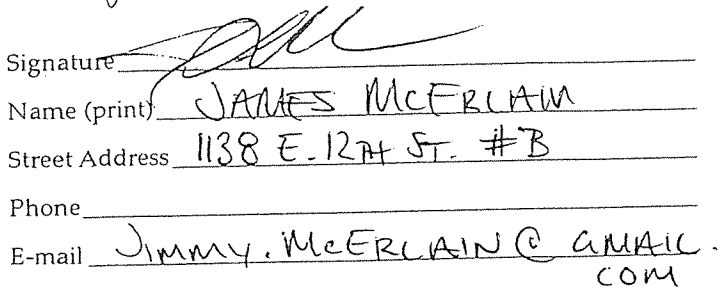 Signature
Name (print) JAMES MCERLAIN
Street Address 1138 E. 12TH ST. #B
Phone
E-mail JIMMY.MCERLAIN@GMAIL.
COM